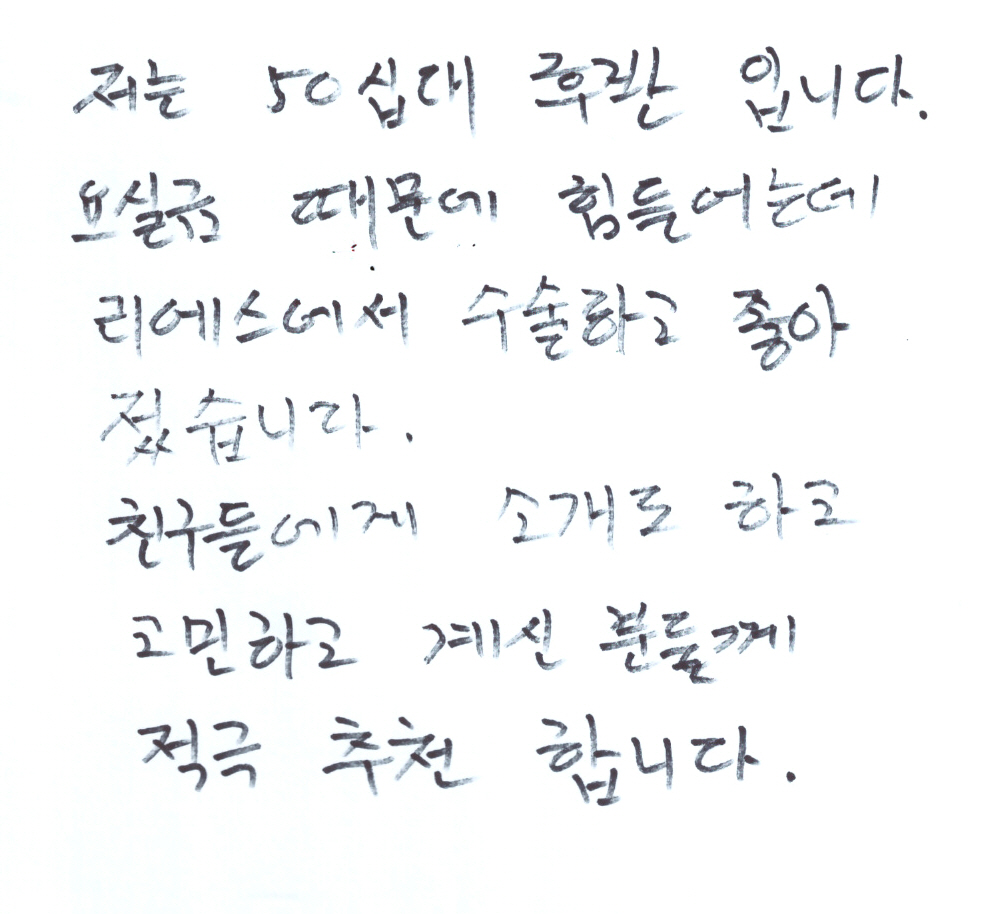 저는 50십대 후관 입니다.
요실금 때문에 힘들어는데
리에스에서 수술하고 좋아
젔습니다.
친구들에게 소개로 하고
고민하고 계신 분들께
적극 추천 합니다.